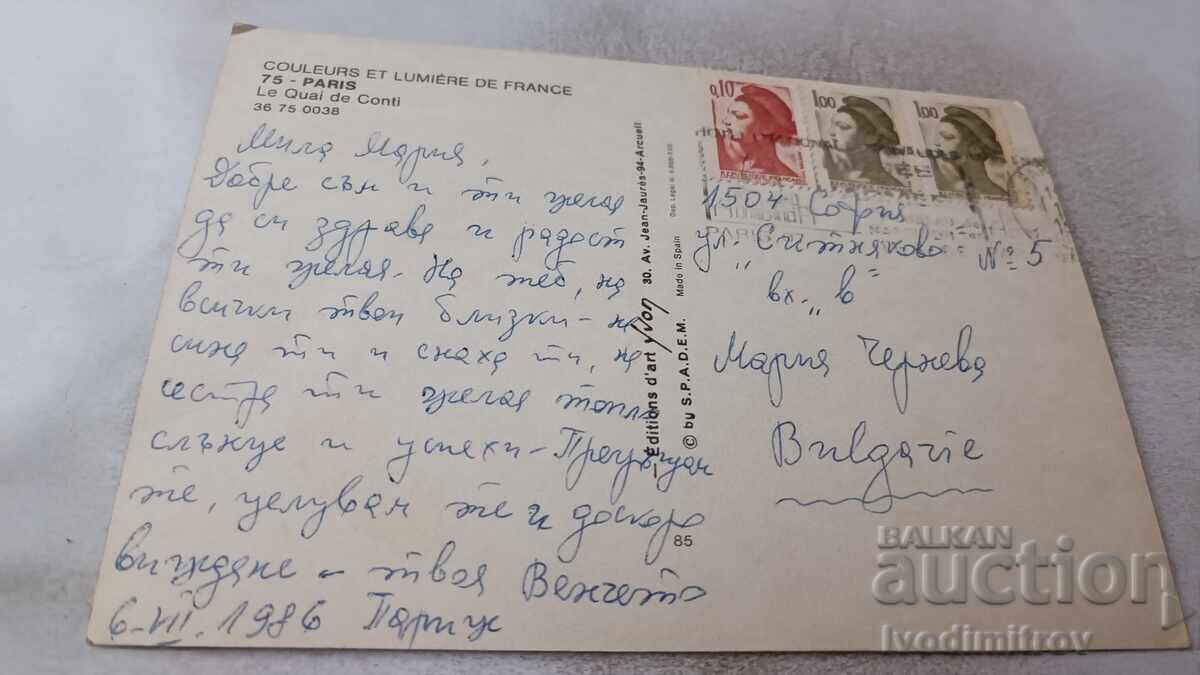 COULEURS ET LUMIÈRE DE FRANCE
75 - PARIS
Le Quai de Conti
36 75 0038
Мила Мария,
Добре съм и ти желая
да си здрава и радост
ти желая. На теб, на
всички твои близки - на
сина ти и снаха ти, на
сестра ти желая топло
слънце и успехи -
те, целувам те и доскоро
виждане - твоя Венчето
6-VII. 1986 Париж
— Éditions d'art yvon 30. Av. Jean-Jaurès-94-Arcueil
© bu S.P.A.D.E.M. Made in Spain
85
0,10
1,00
1,00
1504 София
ул. "Ситняково" № 5
вх. "в"
Мария Чернева
Bulgarie
BALKAN
auction
Ivodimitrov